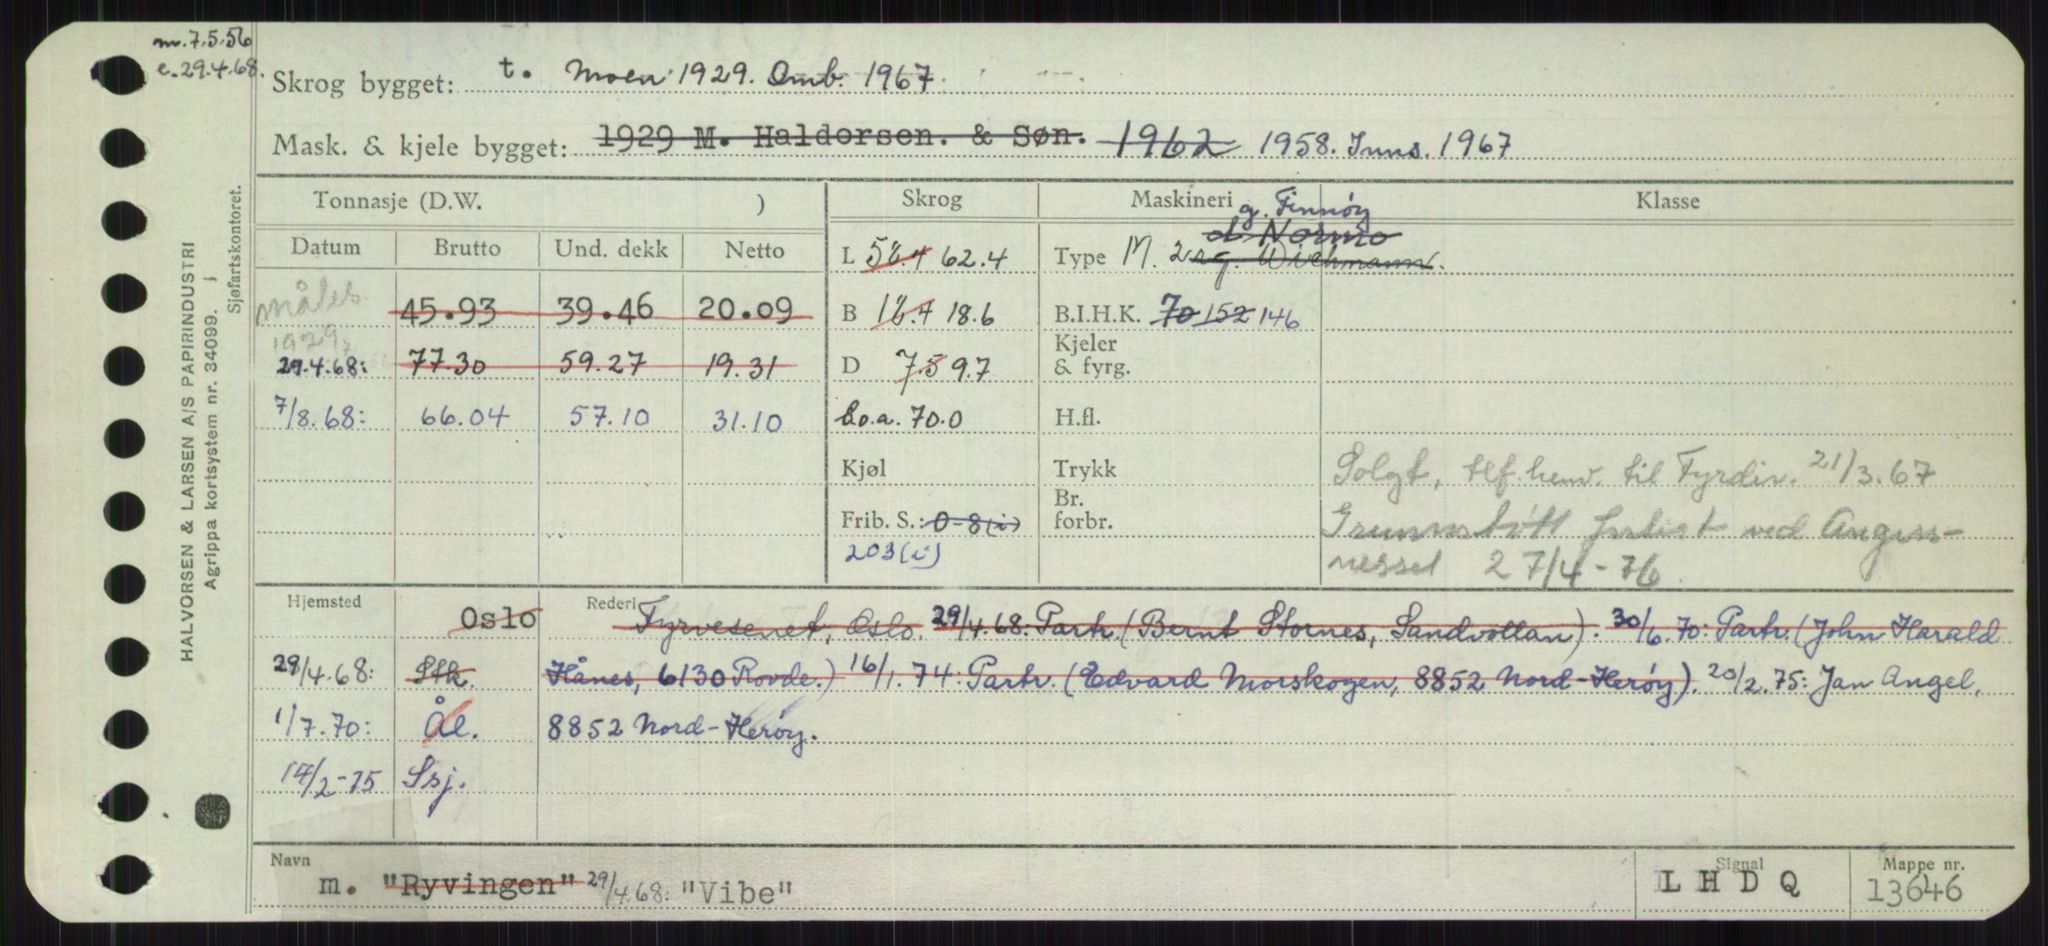 m.7.5.56
e.29.4.68.
Skrog bygget: t. Moen 1929. Omb. 1967.
Mask. & kjele bygget: 1929 M. Haldorsen. & Søn. 1962 1958. Inns. 1967
Tonnasje (D.W. ) Skrog Maskineri Klasse
g. Finnøy
d Normo
Datum Brutto Und. dekk Netto L 58.4 62.4 Type M. 2 sg. Wichmann.
måles 45.93 39.46 20.09 B 18.4 18.6 B.I.H.K. 70 152 146
1929
Kjeler
29.4.68: 77.30 59.27 19.31 D 7.5 9.7 & fyrg.
7/8.68: 66.04 57.10 31.10 Lo.a. 70.0 H.fl.
Kjøl Trykk Solgt, tlf. henv. til Fyrdir. 21/3.67
Br.
Frib. S.: 0-8(i) forbr. Grunnstøtt forlist ved
203(i) 27/4-76
Hjemsted Oslo Rederi Fyrvesenet, Oslo. 29/4.68: Partr. (Bernt Stornes, Sandvollan). 30/6.70: Partr. (John Harald
29/4.68: Stk. Hånes, 6130 Rovde.) 16/1.74: Partr. (Edvard Morskogen, 8852 Nord-Herøy). 20/2.75: Jan Angel,
1/7.70: Ål. 8852 Nord-Herøy.
14/2-75 Ssj.
Navn Signal Mappe nr.
m. "Ryvingen" 29/4.68: "Vibe" L H D Q 13646
HALVORSEN & LARSEN A/S PAPIRINDUSTRI
Agrippa kortsystem nr. 34099. i
Sjøfartskontoret.